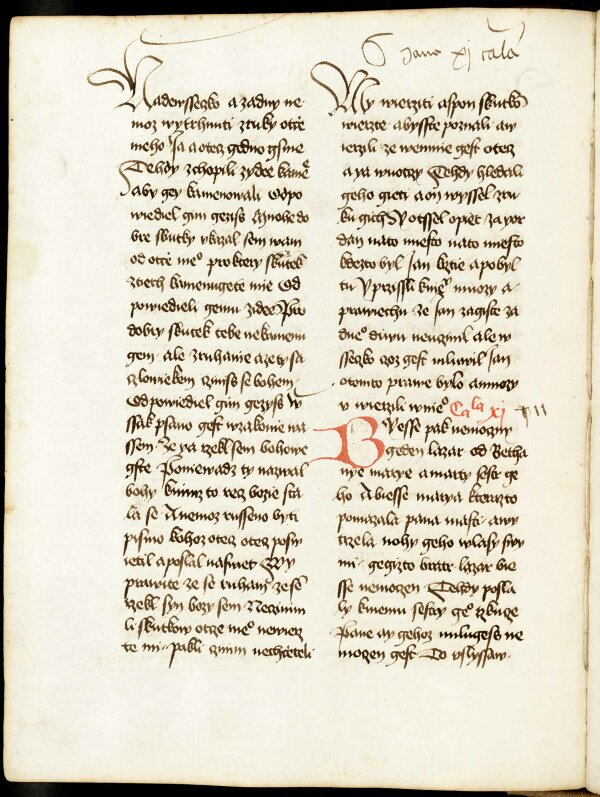 S Jana xj cala
Nadewssezko a zadny ne
moz wytrhnuti zruky otcze
meho Ja a otecz gedno gsme
Tehdy zchopili zydee kame
aby gey kamenowali Odpo
wiediel gim gezus Mnohe do
bre skutky ukazal sem wam
od otcze meo pro ktery skutek
ztiech kamenugete mie Od
powiediely gemu zidee Pro
dobry skutek tebe nekamenu
gem ale zruhanie a ze ty sa
czlowiekem czinis se bohem
Odpowiediel gim gezyss W
ssak psano gest wzakonie wa
ssem Ze ya rzekl sem bohowe
gste Poniewadz ty nazwal
bohy knimz to rzecz bozie sta
la se A nemoz russeno byti
pismo kohoz otecz otecz poswi
ietil a poslal naswiet Wy
prawite ze se ruham ze sem
rzekl syn bozy sem Neczinim
li skutkow otcze meo newierz
te mi pakli czinim nechcteteli
My wierziti aspon skutkom
wierzte abysste poznali a w
ierzili ze wemnie gest otecz
a ya wotczy Tehdy hledali
geho gieti a on wyssel zru
ku gich Y otssel opiet za yor
dan nato miesto nato miesto
kdezto byl Jan krztie a pobyl
tu Y przissli knemu mnozy a
prawiechu ze Jan zagiste za
dneo diwu neuczinil ale w
sseczko coz gest mluwil Jan
otomto prawe bylo a mnozy
u wierzili wnieo Cala xj
BYesse pak nemoczny
geden lazar od Betha
nye marye a marty sestr ge
ho A biesse marya kterazto
pomazala pana masti a wy
trzela nohy geho wlasy swy
mi gegizto bratr lazar bie
sse nemoczen Tehdy posla
ly kniemu sestry geo rzkuze
Pane ay gehoz milugess ne
moczen gest To uslyssaw